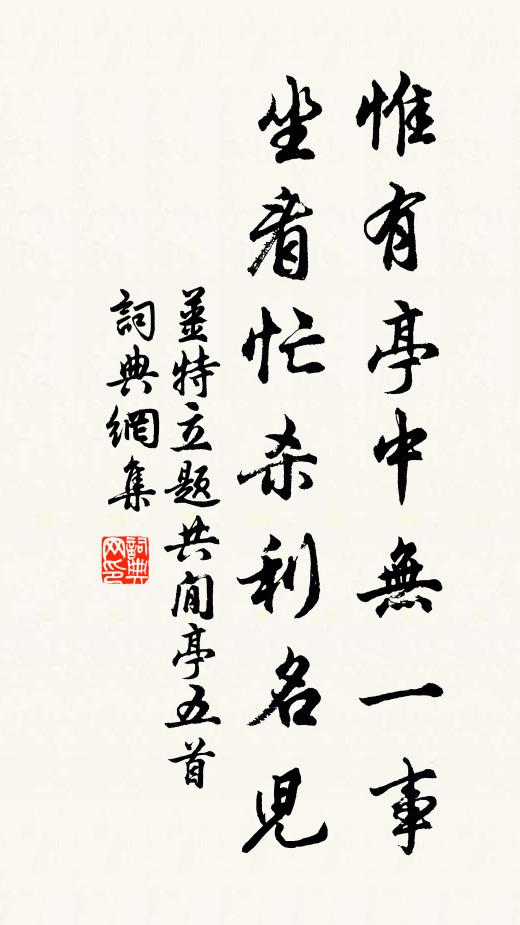 惟有亭中無一事
坐看忙杀利名児
薑特立题共閒亭五首
詞典網集
詞典网印